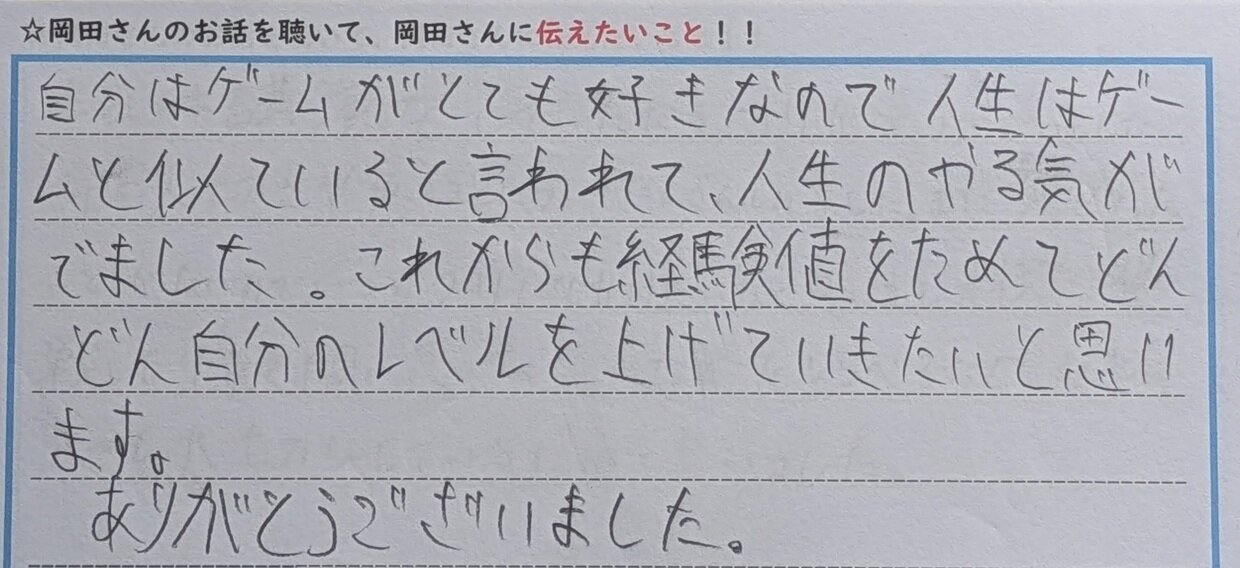 ☆岡田さんのお話を聴いて、岡田さんに伝えたいこと！！
自分はゲームがとても好きなので人生はゲー
ムと似ていると言われて、人生のやる気が
でました。これからも経験値をためてどん
どん自分のレベルを上げていきたいと思い
ます。
ありがとうございました。